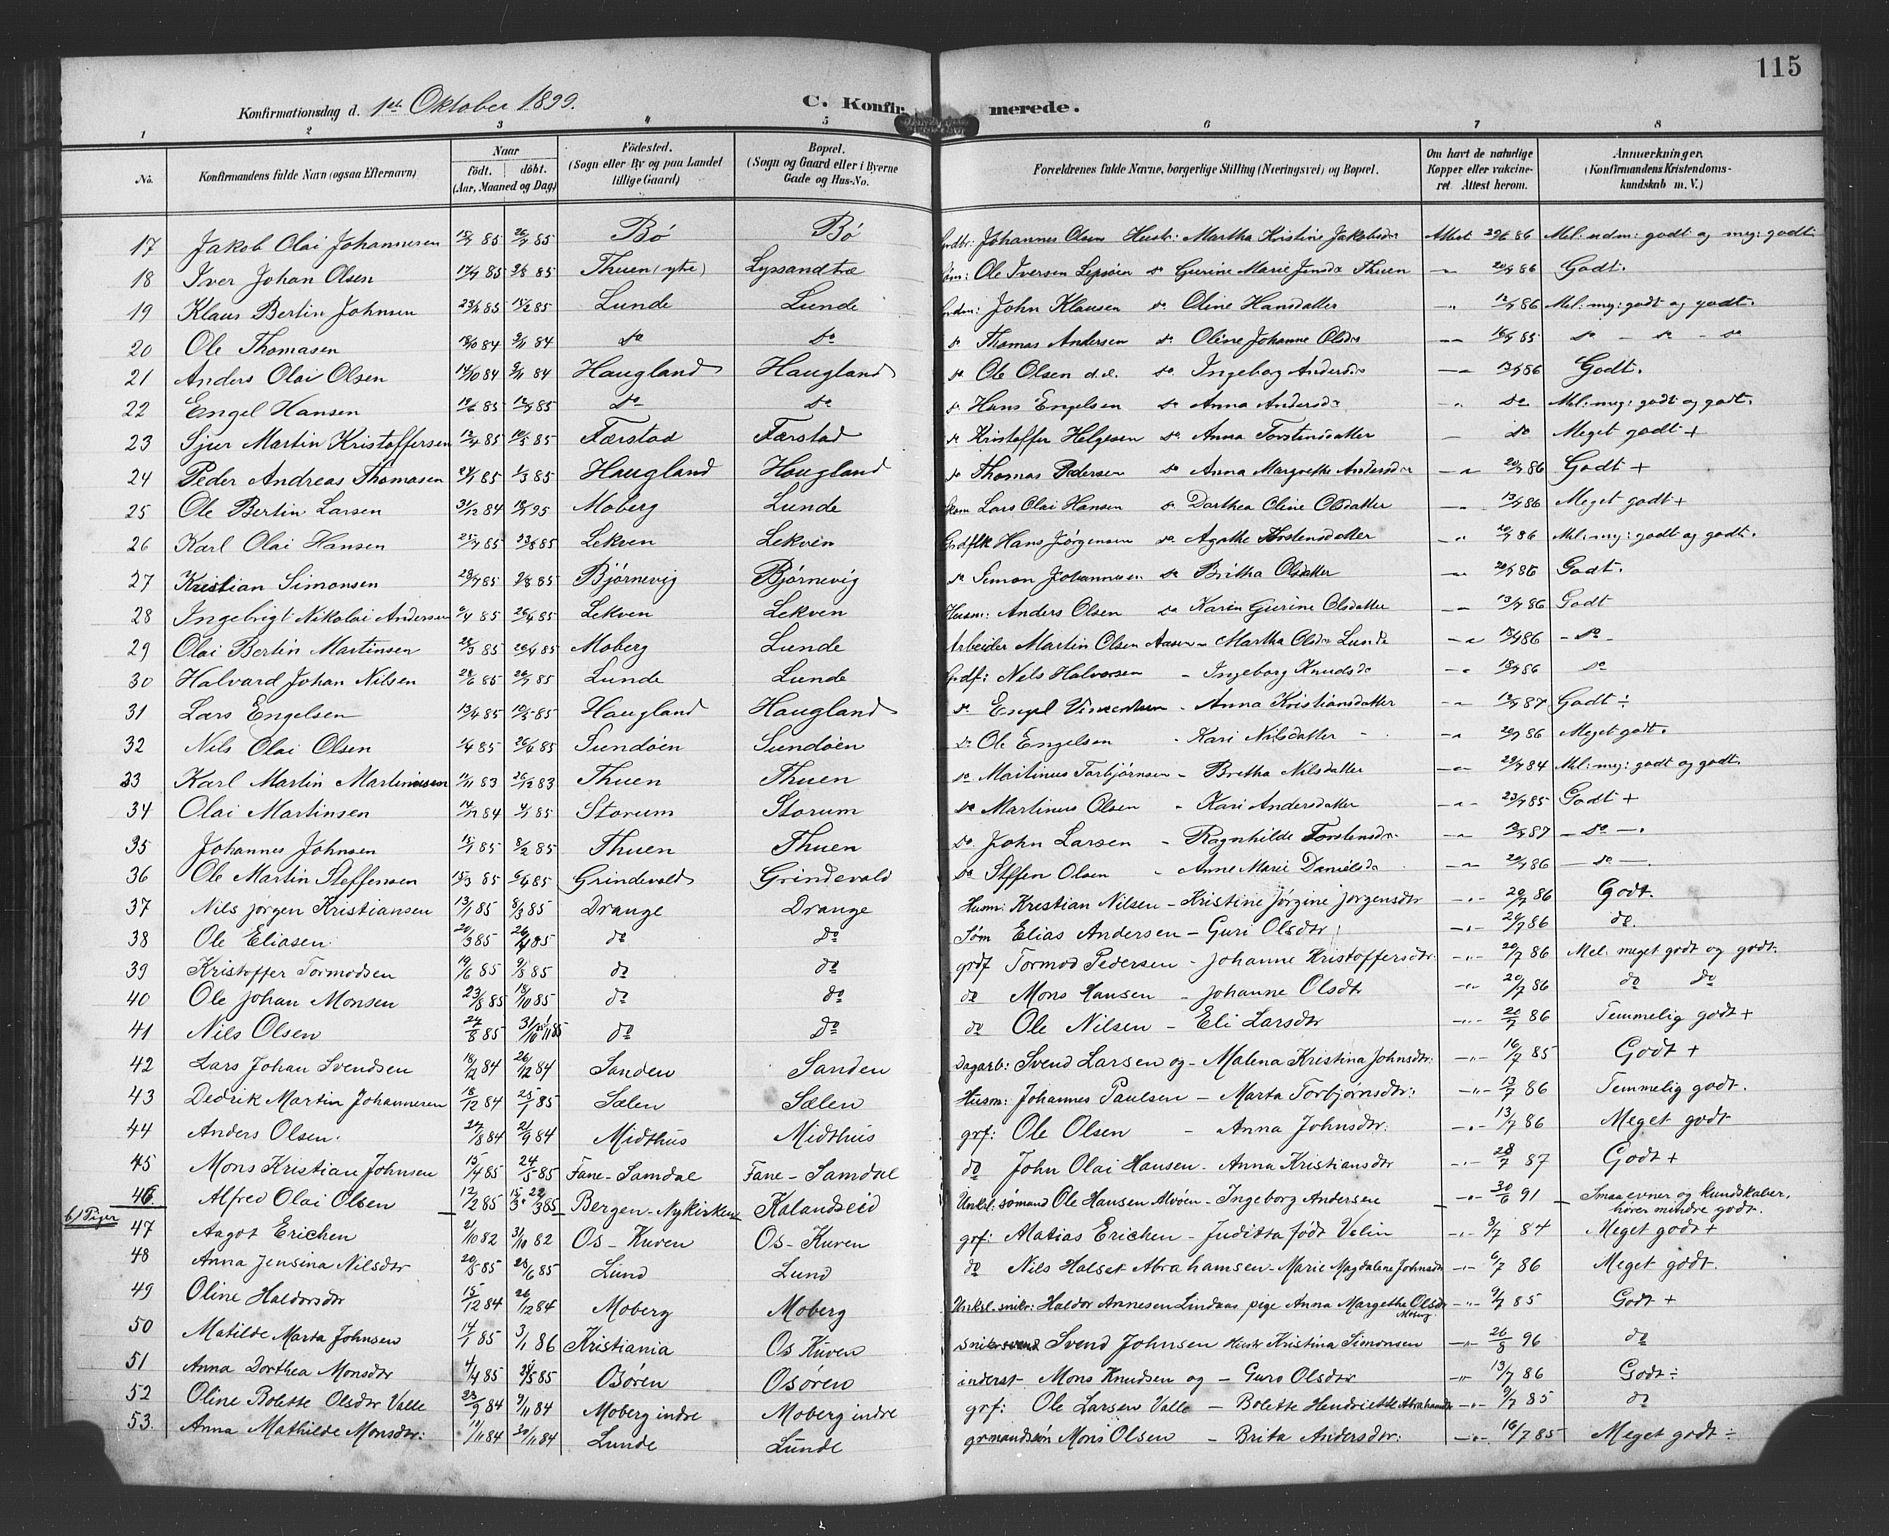 115
Konfirmationsdag d. 1ste Oktober 1899. C. Konfir merede.
1 2 3 4 5 6 7 8
No. Konfirmandens fulde Navn (ogsaa Efternavn) Naar født. døbt. (Aar, Maaned og Dag) Fødested. (Sogn eller By og paa Landet tillige Gaard) Bopæl. (Sogn og Gaard eller i Byerne Gade og Hus-No. Forældrenes fulde Navne, borgerlige Stilling (Næringsvei) og Bopæl. Om havt de naturlige Kopper eller vakcineret. Attest herom. Anmærkninger. (Konfirmandens Kristendomskundskab m. V.)
17 Jakob Olai Johannesen 85 85 Bø Bø Johannes Olsen Hustr: Martha Kristine Jakobsdr Attest 29/6 86 Mel: udm: godt og mg: godt
18 Iver Johan Olsen 85 85 Thuen (ytre) Lyssandtræ Søm: Ole Iversen Lepsøen do Gurine Marie Jensdr Thuen 86 Godt.
19 Klaus Bertin Johnsen 85 85 Lunde Lunde John Klausen do Oline Hansdatter 86 Mel: mg: godt og godt.
20 Ole Thomasen 84 84 do do do Thomas Andersen do Oline Johanne Olsdr 85 do - do - do
21 Anders Olai Olsen 84 84 Haugland Haugland do Ole Olsen d.e. do Ingeborg Andersdr 86 Godt.
22 Engel Hansen 85 85 do do do Hans Engelsen do Anna Andersdr do Mel: mg: godt og godt.
23 Sjur Martin Kristoffersen 85 85 Færstad Færstad do Kristoffer Helgesen do Anna Torstensdatter do Meget godt +
24 Peder Andreas Thomasen 85 85 Haugland Haugland do Thomas Pedersen do Anna Margrethe Andersdr 86 Godt +
25 Ole Bertin Larsen 31/12 84 95 Moberg Lunde Lars Olai Hansen do Dorthea Oline Olsdatter 86 Meget godt +
26 Karl Olai Hansen 85 85 Lekven Lekven Grdflk Hans Jørgensen do Agathe Torstensdatter 86 Mel: mg: godt og godt.
27 Kristian Simonsen 85 85 Bjørnevig Bjørnevig do Simon Johannesen do Britha Olsdatter 86 Godt.
28 Ingebrigt Nikolai Andersen 85 85 Lekven Lekven Husm: Anders Olsen do Karin Gurine Olsdatter 86 Godt
29 Olai Bertin Martinsen 85 85 Moberg Lunde Arbeider Martin Olsen Aasen - Martha Olsdr Lunde 86 - do -
30 Halvard Johan Nilsen 85 85 Lunde Lunde Grdf: Nils Halvorsen - Ingeborg Knudsdr 86 do
31 Lars Engelsen 85 85 Haugland Haugland do Engel Vincentsen - Anna Kristiansdatter 87 Godt ÷
32 Nils Olai Olsen 85 85 Sundøen Sundøen Do Ole Engelsen - Kari Nilsdatter 86 Meget godt.
33 Karl Martin Martinusen 83 83 Thuen Thuen do Martinus Torbjørnsen - Bretha Nilsdatter 84 Mel: mg: godt og godt.
34 Olai Martinsen 84 85 Storum Storum do Martinus Olsen - Kari Andersdatter 85 Godt +
35 Johannes Johnsen 85 85 Thuen Thuen do John Larsen - Ragnhilde Torstensdr. 87 - do -.
36 Ole Martin Steffensen 85 85 Grindevold Grindevold do Steffen Olsen - Anne Marie Danielsdr 86 - do -.
37 Nils Jørgen Kristiansen 13/1 85 8/3 85 Drange Drange Husm: Kristian Nilsen - Kristine Jørgine Jørgensdtr 20/7 86 Godt.
38 Ole Eliasen 20/3 85 26/4 85 do do Søm Elias Andersen - Guri Olsdtr 20/7 86 do.
39 Kristoffer Tormodsen 19/6 85 9/8 85 do do grdf Tormod Pedersen - Johanne Kristoffersdtr 20/7 86 Mel: meget godt og godt.
40 Ole Johan Monsen 23/8 85 18/10 85 do do do Mons Hansen - Johanne Olsdtr 20/7 86 do do
41 Nils Olsen 24/8 85 31/10 85 do do do Ole Nilsen - Eli Larsdtr 20/7 86 Temmelig godt +
42 Lars Johan Svendsen 18/12 84 26/12 84 Sanden Sanden Dagarb: Svend Larsen og - Malena Kristina Johnsdtr: 16/7 85 Godt +
43 Didrik Martin Johannesen 18/12 84 25/1 85 Sælen Sælen Husm: Johannes Paulsen - Marta Torbjørnsdtr: 13/7 86 Temmelig godt.
44 Anders Olsen. 24/8 84 21/9 84 Midthus Midthus grf: Ole Olsen - Anna Johnsdtr: 13/7 86 Meget godt
45 Mons Kristian Johnsen 15/4 85 24/5 85 Fane-Samdal Fane-Samdal do John Olai Hansen - Anna Kristiansdtr 28/7 87 Godt +
46 Alfred Olai Olsen 12/2 85 85 Bergen-Nykirken Kalandseid Uækt. sømand Ole Hansen Alvøen - Ingeborg Andersen 30/6 91 Smaa evner og kundskaber, hører mindre godt.
b/ Piger
47 Aagot Erichen 21/10 82 3/10 82 Os-Kuven Os-Kuven grf: Matias Erichen - Juditta født Velin 3/7 84 Meget godt +
48 Anna Jensina Nilsdtr 20/5 85 28/6 85 Lund Lund do Nils Halset Abrahamsen - Marie Magdalene Johnsdr 6/7 86 Meget godt.
49 Oline Haldorsdtr 15/12 84 26/12 84 Moberg Moberg Haldor Annesen Lindaas pige Anna Margethe Olsdr Moberg 9/7 85 Godt +
50 Matilde Marta Johnsen 14/1 85 3/1 86 Kristiania Os Kuven snikersvend Svend Johnsen Hustr Kristina Simonsen 26/8 96 do
51 Anna Dorthea Monsdtr 4/4 85 85 Osøren Osøren inderst Mons Knudsen og - Guro Olsdtr 13/7 86 Godt ÷
52 Oline Bolette Olsdtr Valle 23/9 84 9/11 84 Moberg indre Moberg indre grf: Ole Larsen Valle - Bolette Hendriette Abrahamsdtr 9/7 85 do
53. Anna Mathilde Monsdtr: 11/11 84 30/11 84 Lunde Lunde Mons Olsen - Brita Andersdtr: 16/7 85 Meget godt ÷